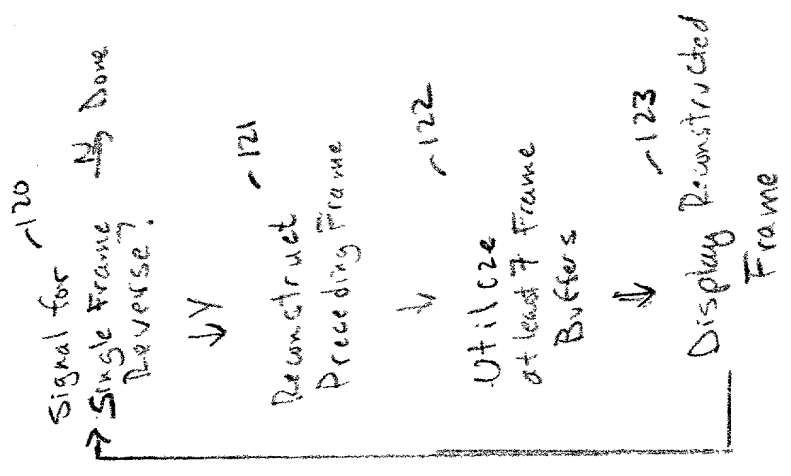 Signal for 120
Single Frame N Done
Reverse?
Y
Reconstruct 121
Preceding Frame
122
Utilize
at least 7 Frame
Buffers
123
Display Reconstructed
Frame